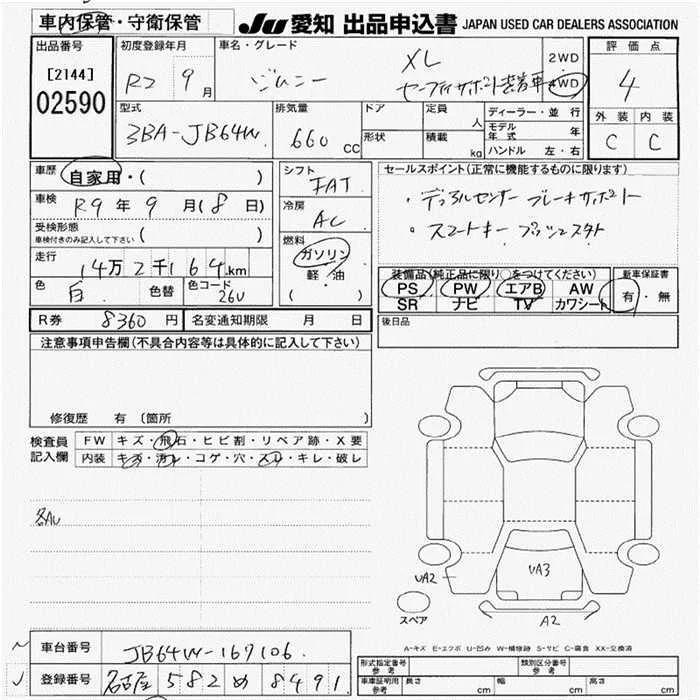 車内保管・守衛保管
JU 愛知 出品申込書 JAPAN USED CAR DEALERS ASSOCIATION
出品番号 初度登録年月 車名・グレード 評価点
[2144] R2 9月 ジムニー XL 2WD 4
02590 セーフティサポート装着車 4WD
型式 排気量 ドア 定員 人 ディーラー・並行 外装 内装
3BA-JB64W 660cc 形状 積載 kg モデル年式 年 C C
ハンドル 左・右
車歴 自家用・( ) シフト FAT セールスポイント(正常に機能するものに限ります)
車検 R9年9月(8日) 冷房 AC ・デュアルセンサーブレーキサポート
受検形態 車検付きのみ記入して下さい ( ) 燃料 ・スマートキー プッシュスタート
走行 14万2千164km ガソリン 装備品(純正品に限り○をつけてください) 新車保証書
軽・油 PS PW エアB AW 有・無
色 白 色替 色コード 26U ( ) SR ナビ TV カワシート
R券 8360円 名変通知期限 月 日 後日品
注意事項申告欄(不具合内容等は具体的に記入して下さい)
修復歴 有 (箇所
検査員 FW キズ・飛石・ヒビ割・リペア跡・X要
記入欄 内装 キズ・汚れ・コゲ・穴・スレ・キレ・破レ
各AU
UA3
UA2
A2
スペア
A-キズ E-エクボ U-凹み W-補修跡 S-サビ C-腐食 XX-交換済
車台番号 JB64W-167106
登録番号 名古屋 582 め 8491
形式指定番号 参考 類別区分番号 参考
車庫証明用 参考 長さ cm 幅 cm 高さ cm